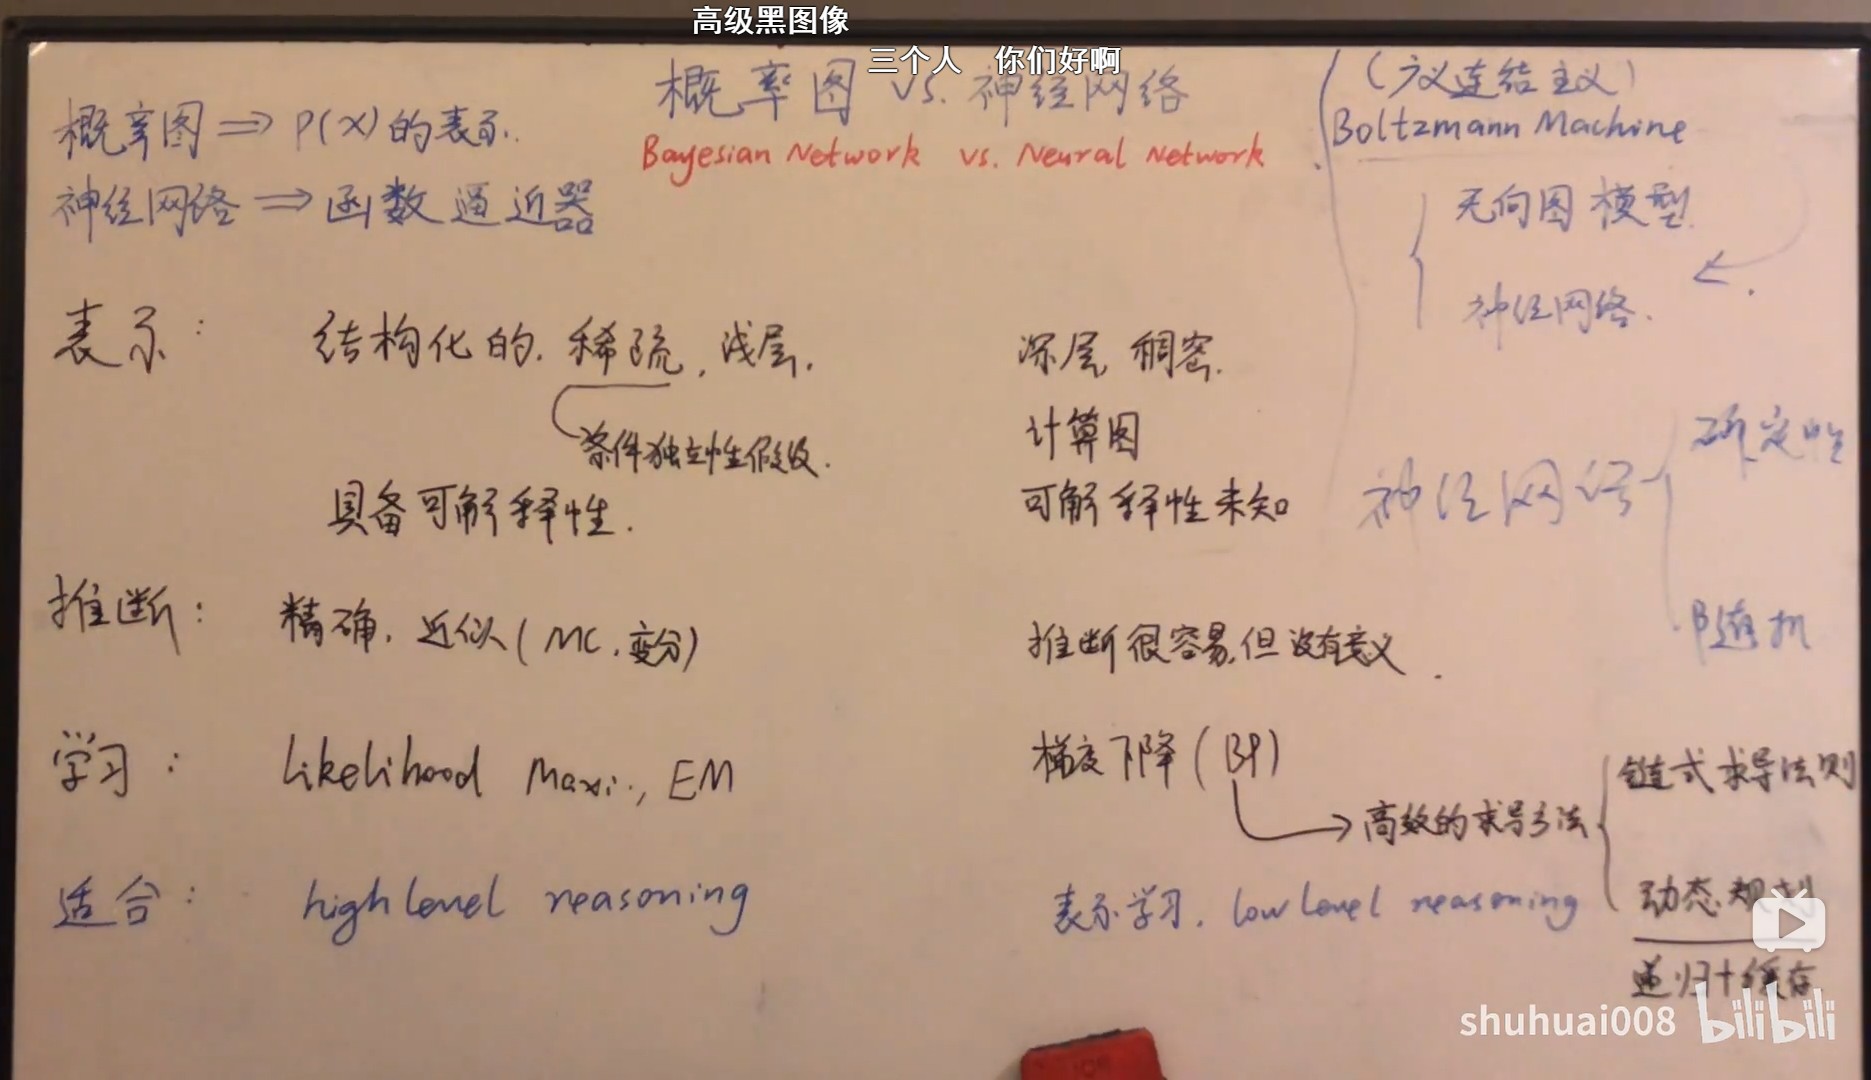 高级黑图像
三个人 你们好啊
概率图 vs. 神经网络
Bayesian Network vs. Neural Network
概率图 ⇒ P(X) 的表示.
神经网络 ⇒ 函数逼近器
(广义连结主义)
Boltzmann Machine
无向图模型.
神经网络.
表示: 结构化的. 稀疏, 浅层. 深层, 稠密.
条件独立性假设. 计算图
具备可解释性. 可解释性未知
神经网络
确定性
随机
推断: 精确, 近似 (MC, 变分) 推断很容易, 但没有意义.
学习: Likelihood Maxi., EM 梯度下降 (BP)
→ 高效的求导方法
链式求导法则
动态规划
递归+缓存
适合: high level reasoning 表示学习. low level reasoning
shuhuai008 bilibili